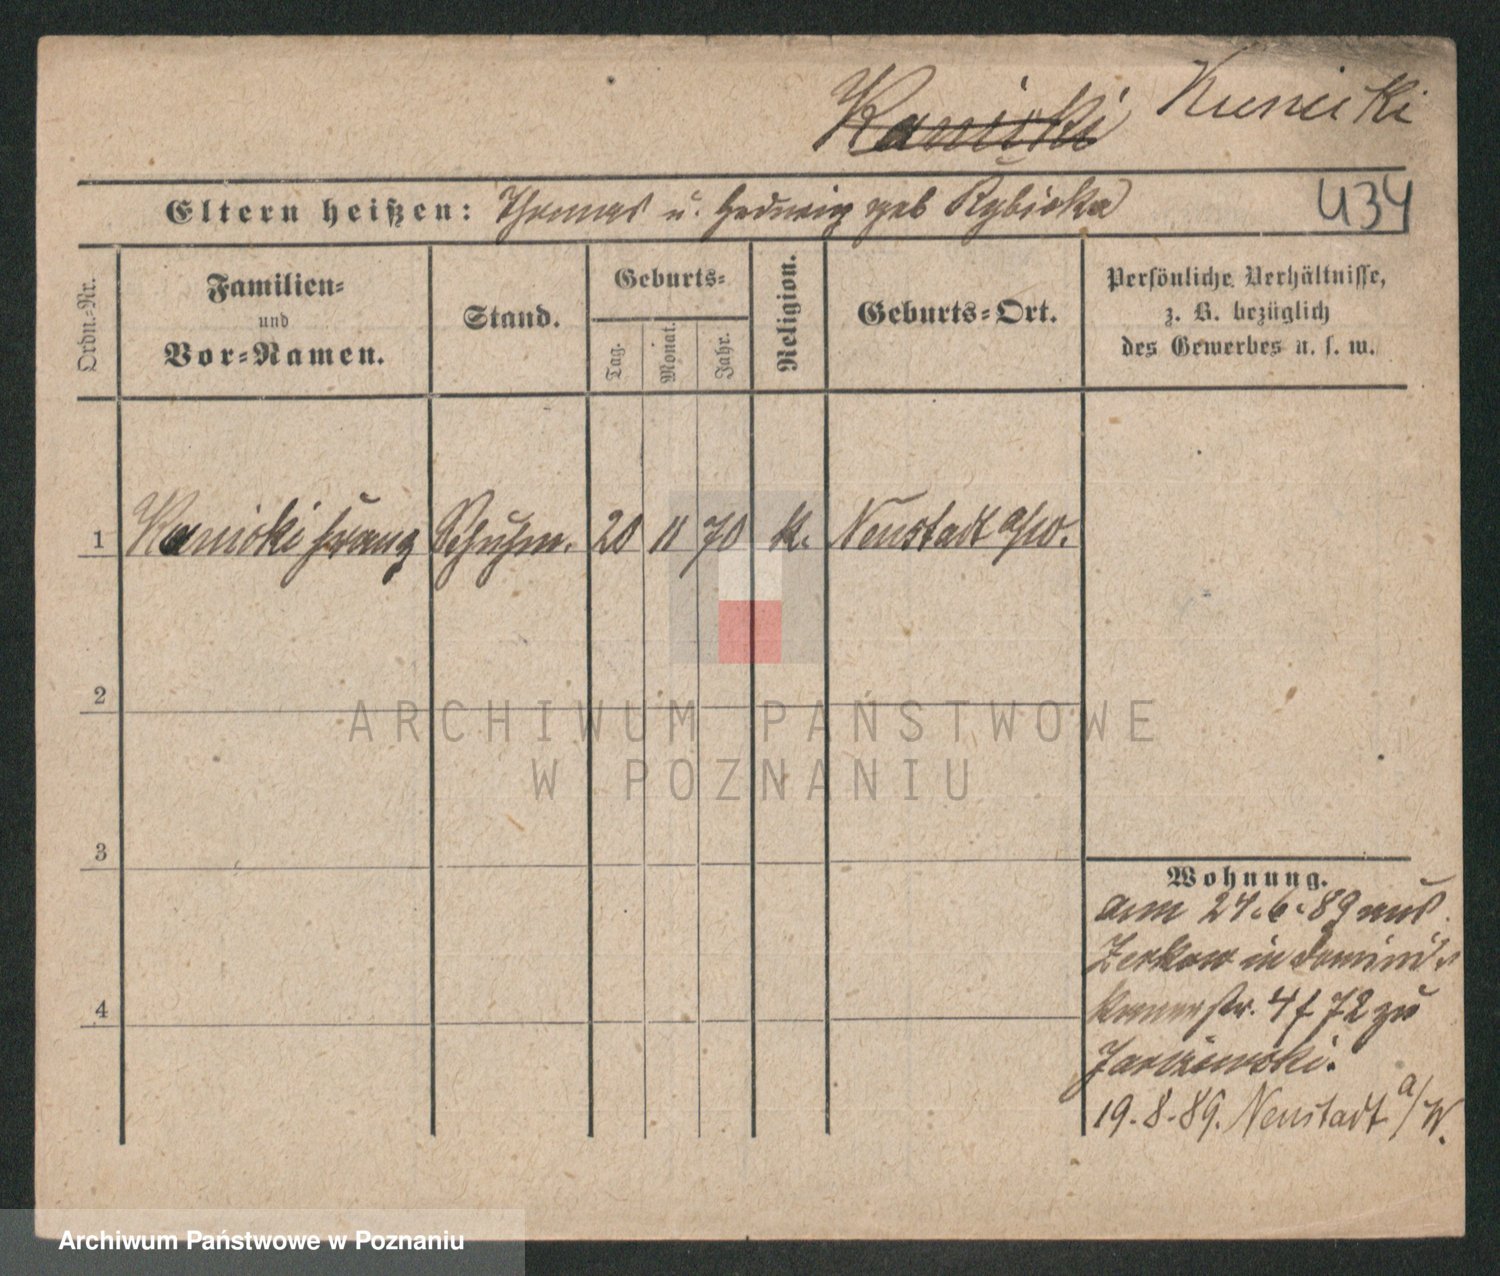 Kanicki Kunicki
Eltern heißen: Thomas u. Hedwig geb Rybicka
434
Ordn.-Nr.
Familien-
und
Vor-Namen.
Stand.
Geburts-
Tag.
Monat.
Jahr.
Religion.
Geburts-Ort.
Persönliche Verhältnisse,
z. B. bezüglich
des Gewerbes u. s. w.
1 Kanicki Franz Schuhm. 20 11 70 k. Neustadt a/w.
2
3
4
Wohnung.
am 24.6.89 aus
Zerkow in Domini
kanerstr. 4 f 72 zu
19.8.89. Neustadt a/W.
ARCHIWUM PAŃSTWOWE
W POZNANIU
Archiwum Państwowe w Poznaniu